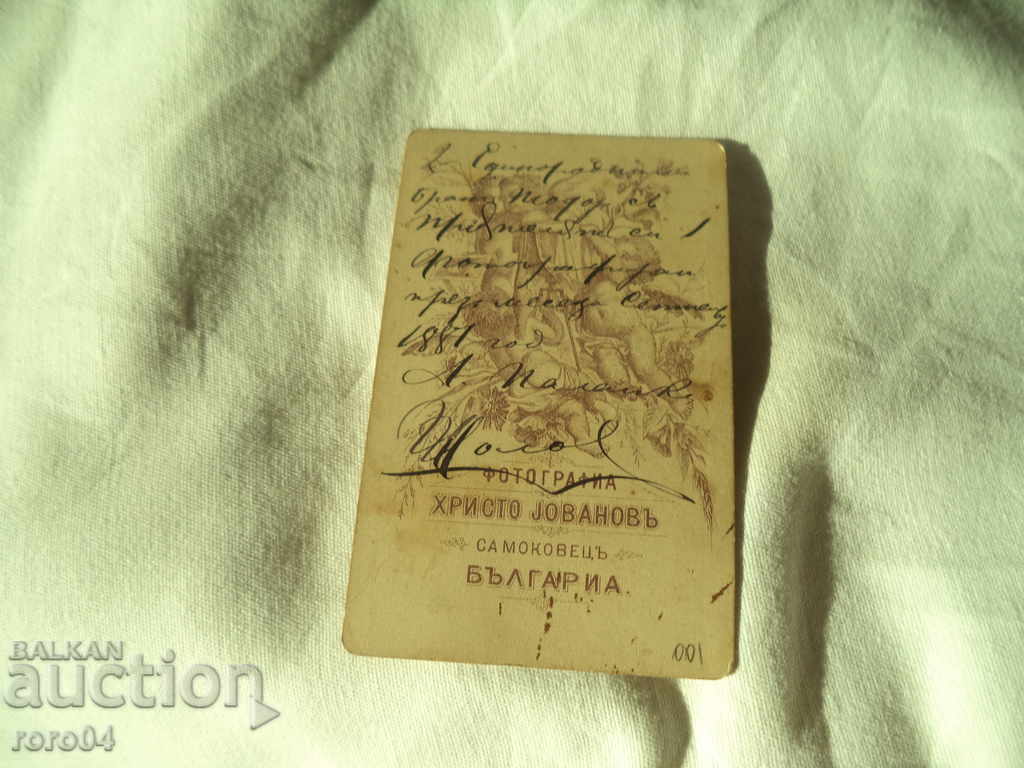 2 Единородний
Братъ Тодоръ
Приятелят си 1
Фотографиран
през месецъ Септец.
1881 год
А. Паланк
ФОТОГРАФИА
ХРИСТО ЈОВАНОВЪ
САМОКОВЕЦЪ
БЪЛГАРИА.
001
BALKAN
auction
roro04